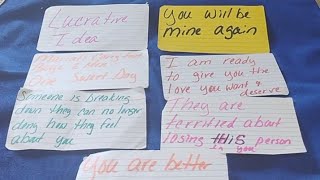 Lucrative
Idea
You will be
mine again
One Sweet Day
I am ready
to give you the
love you want &
deserve
Someone is breaking
down they can no longer
deny how they feel
about you
They are
terrified about
losing this person
is you
You are better